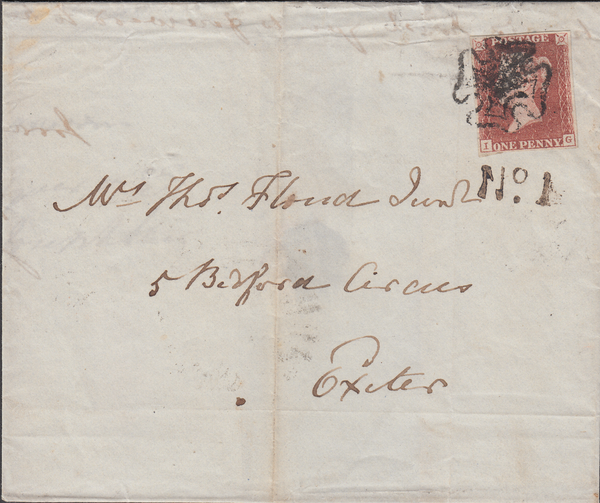 POSTAGE
I ONE PENNY G
No. 1
Mrs Thos. Floud Junr
5 Bedford Circus
Exeter